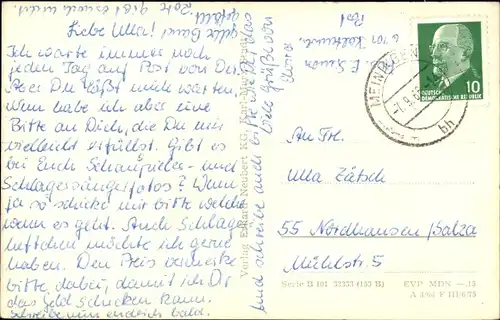 Liebe Ulla!
Ich warte immer noch
jeden Tag auf Post von Dir.
Aber Du läßt mich warten.
Nun habe ich aber eine
Bitte an Dich, die Du mir
vielleicht erfüllst. Gibt es
bei Euch Schauspieler- und
Schlagersängerfotos? Wenn
ja so schicke mir bitte welche
wenn es geht. Auch Schlager
heftchen möchte ich gerne
haben. Den Preis vermerke
bitte, dabei, damit ich Dir
das Geld schicken kann.
Schreibe nun endlich bald.
und schreibe auch bitte
Viele Grüße von
Verlag Erhard Neubert KG,
MEININGEN
bh
10
DEUTSCHE
DEMOKRATISCHE REPUBLIK
An Frl.
Ulla Zätsch
55 Nordhausen/Salza
Mühlstr. 5
Serie B 101 33333 (153 II)
EVP MDN -.15
A 3/66 F III/6/73